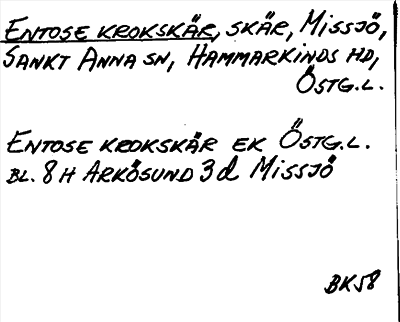 ENTOSE KROKSKÄR, SKÄR, MISSJÖ,
SANKT ANNA SN, HAMMARKINDS HD,
ÖSTG.L.
ENTOSE KROKSKÄR EK ÖSTG.L.
BL. 8H ARKÖSUND 3d MISSJÖ
BK58